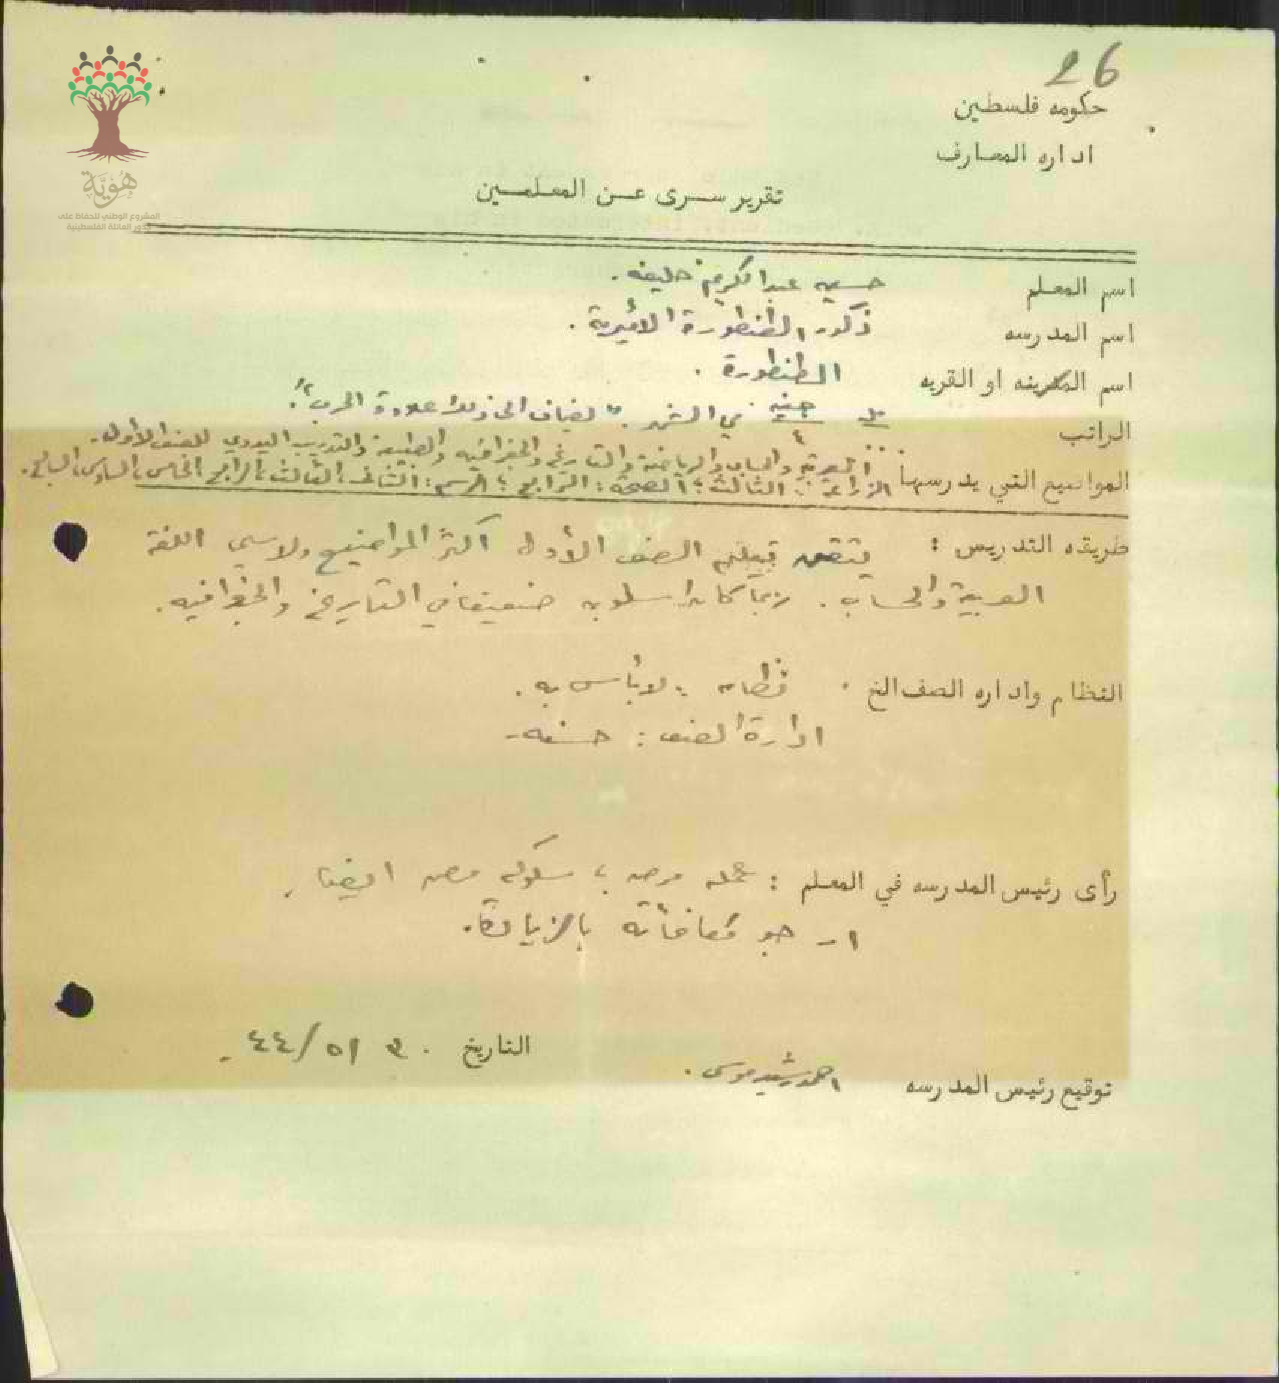 26
حكومه فلسطين
اداره المعارف
تقرير سرى عن المعلمين
هُويَّة
المشروع الوطني للحفاظ على
جذور العائلة الفلسطينية
اسم المعلم حسين عبد الكريم خليفه.
اسم المدرسه ذكور الطنطورة الأميرية.
اسم المدينه او القريه الطنطورة.
الراتب جنيه في الشهر. "يضاف الى ذلك علاوة الحرب".
المواضيع التي يدرسها العربية والحساب والرياضة والتاريخ والجغرافيه والطبيعة والتدريب اليدوي للصف الأول.
الزراعة: الثالث؛ الصحة: الرابع؛ الرسم: الثاني، الثالث، الرابع الخامس، السادس، السابع.
طريقه التدريس : يتقن تعليم الصف الأول اكثر المواضيع ولاسيما اللغة
العربية والحساب. ربما كان اسلوبه ضعيفا في التاريخ والجغرافيه.
النظام واداره الصف الخ . نظامه : لا بأس به.
ادارة الصف : حسنه.
رأى رئيس المدرسه في المعلم : عمله مرضٍ، سلوكه مرضٍ ايضا.
ارجو مكافأته بالزيادة.
التاريخ ٣٠/٥/٤٤
توقيع رئيس المدرسه احمد رشيد موسى.